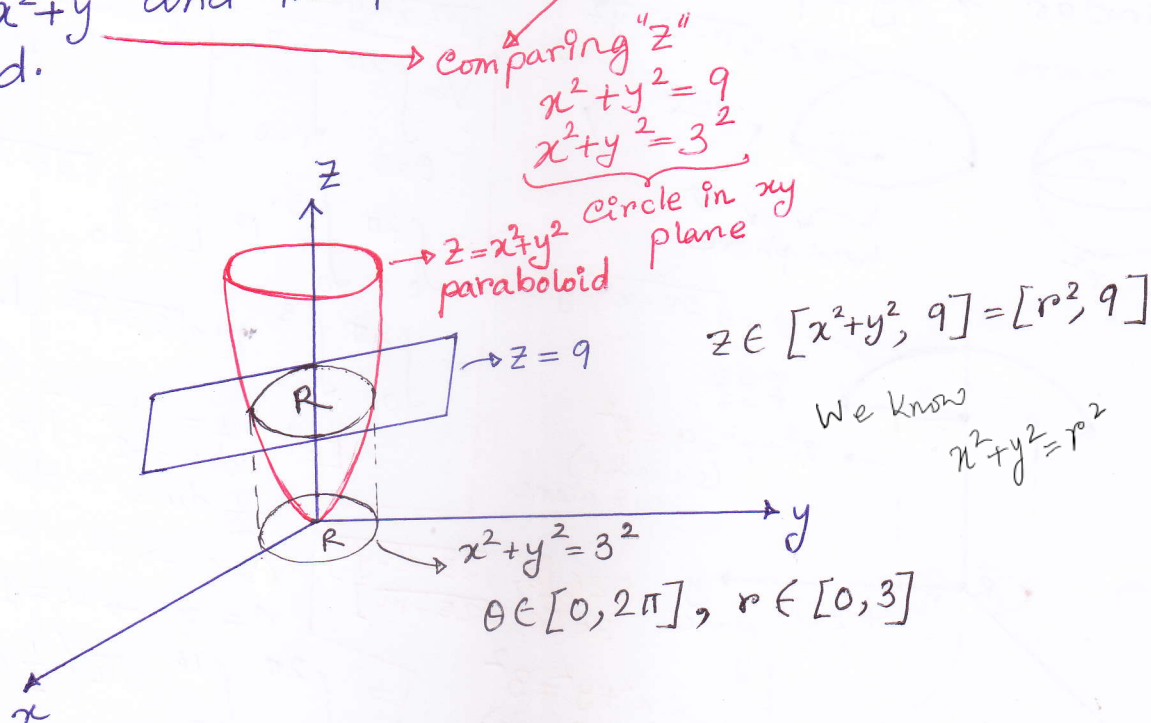 x²+y and
d.
Comparing "Z"
x²+y²=9
x²+y²=3²
Circle in xy
plane
Z
Z=x²+y²
paraboloid
Z=9
R
Z∈[x²+y², 9]=[r², 9]
We know
x²+y²=r²
y
R
x²+y²=3²
θ∈[0,2π], r∈[0,3]
x